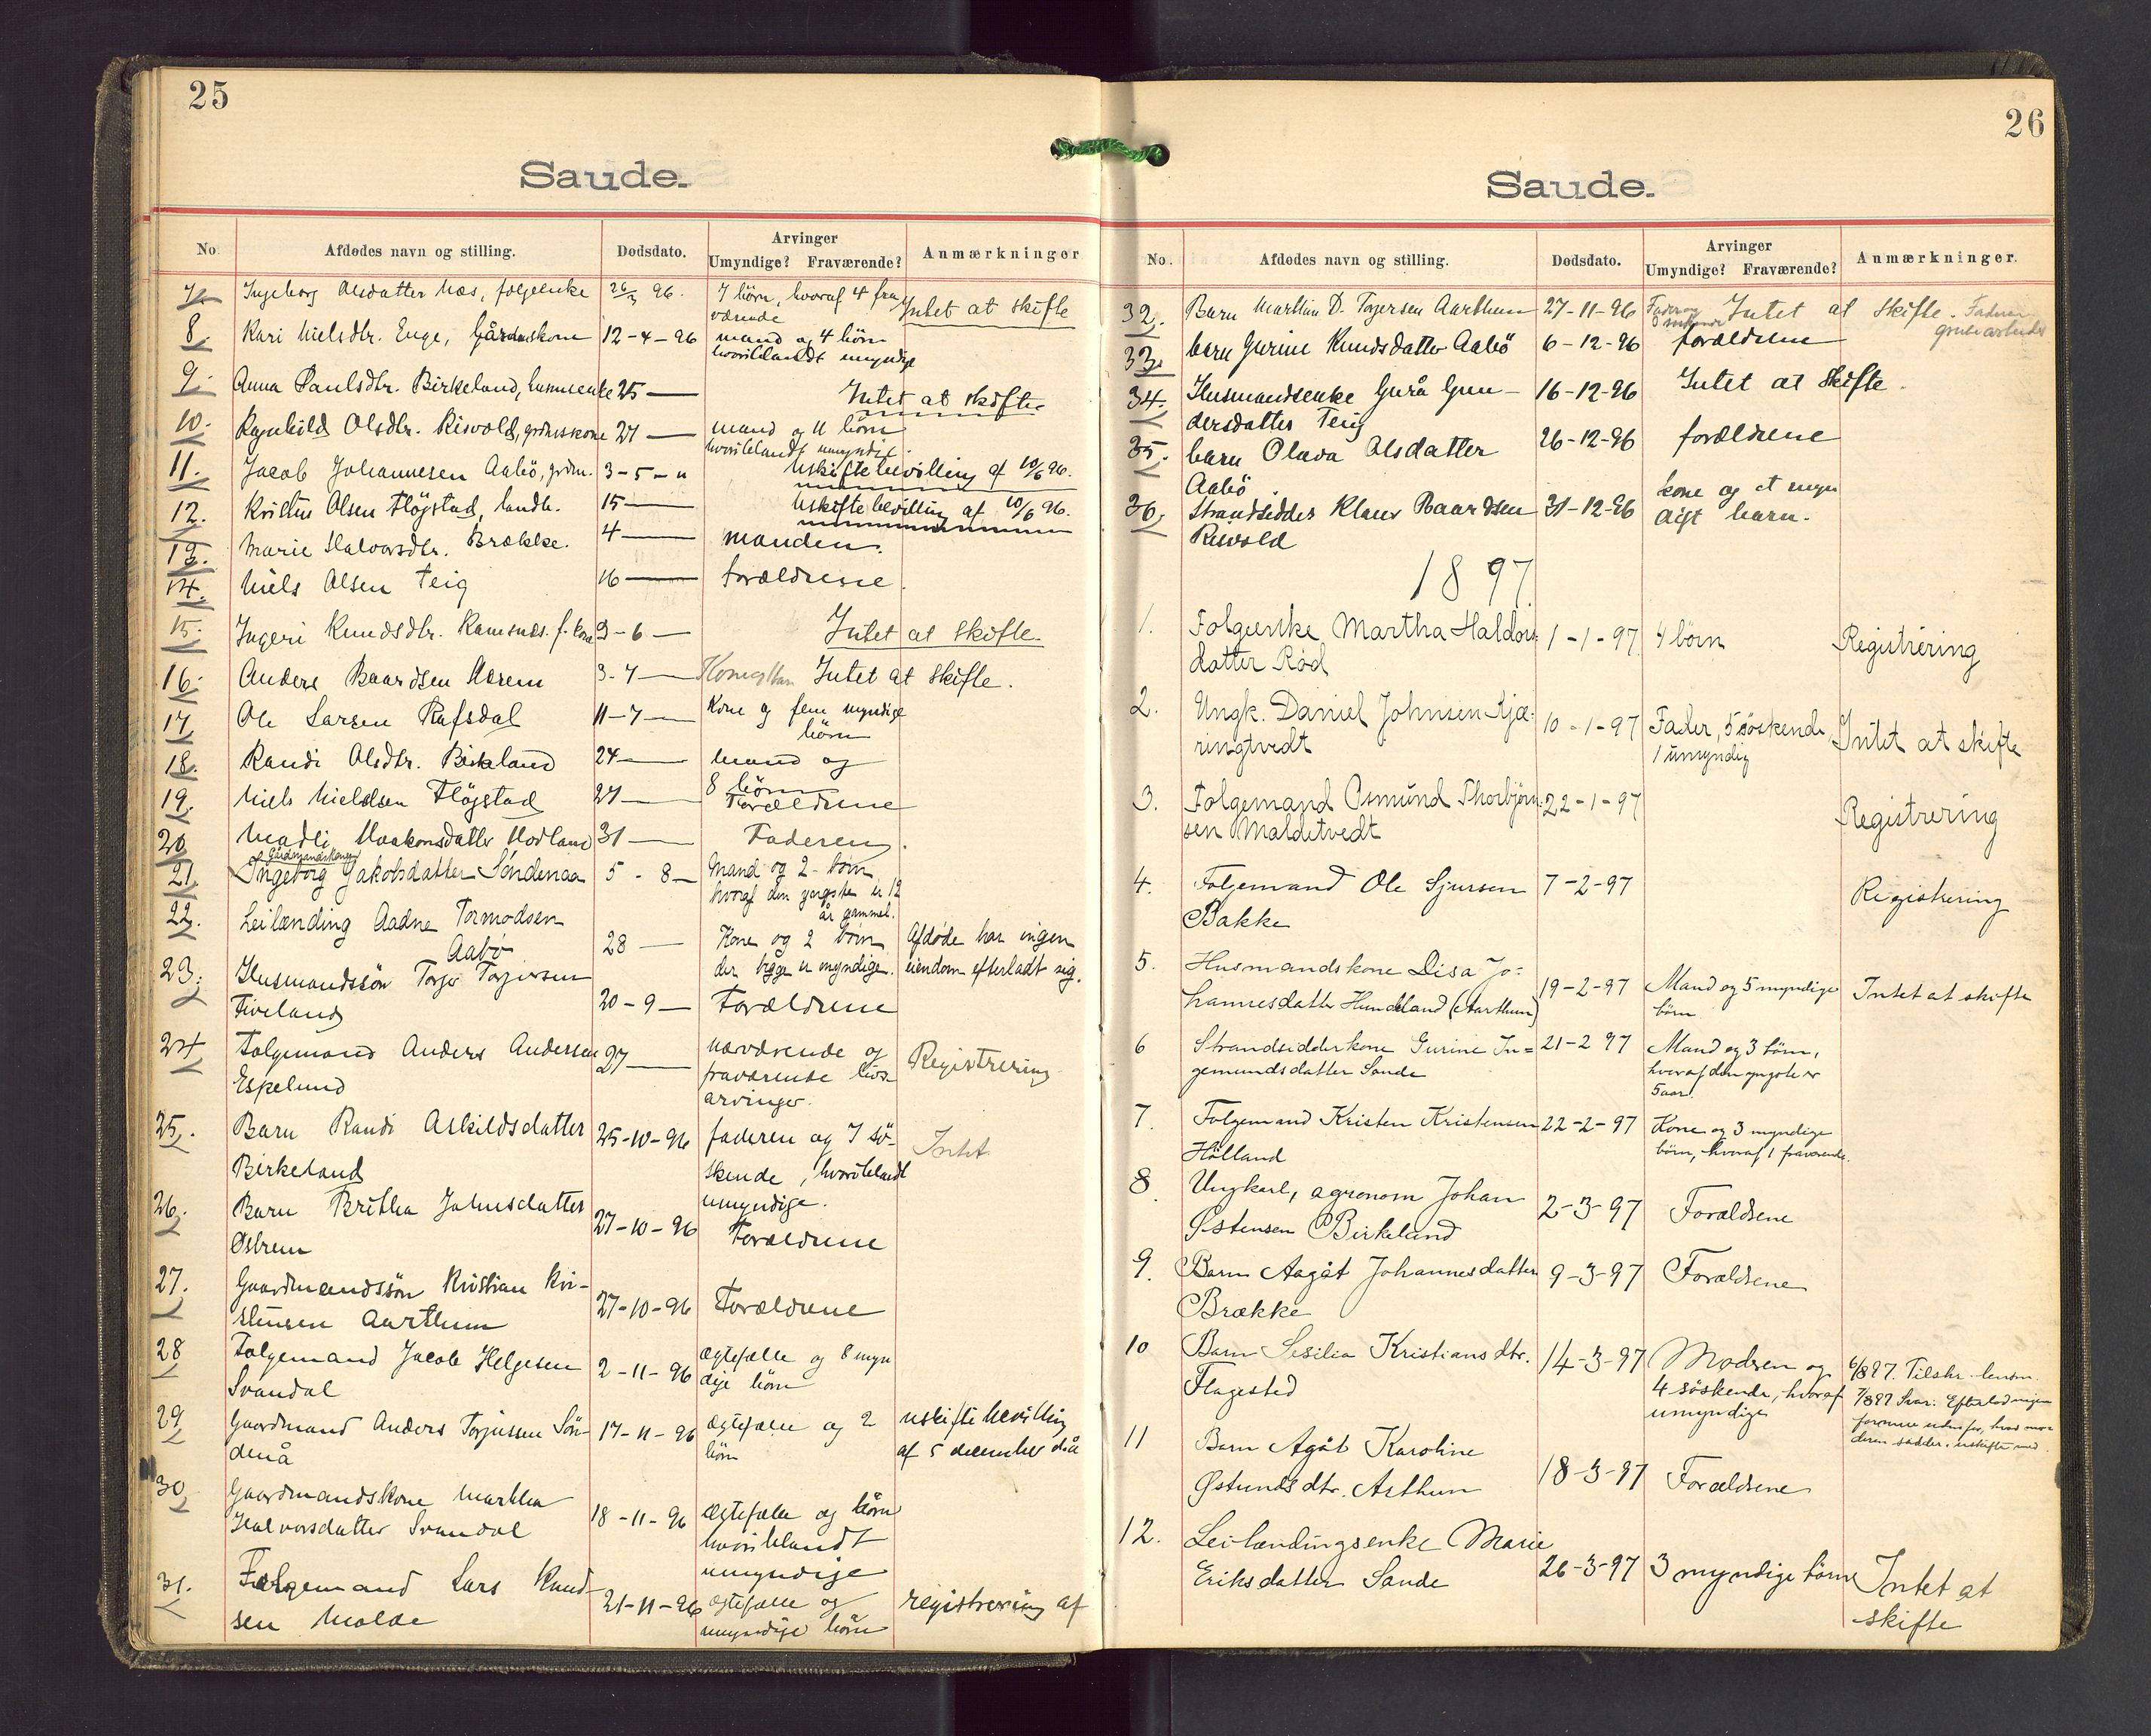 25
Saude.
No. Afdødes navn og stilling. Dødsdato. Arvinger Umyndige? Fraværende? Anmærkninger
7 Ingeborg Olsdatter Næs, folgeenke 26/3 96. 7 börn, hvoraf 4 fra Intet at skifte
værende
8. Kari Nielsdtr. Enge, Gårdmskone 12-4-96 mand og 4 börn
hvoriblandt umyndige
9. Anna Paulsdtr. Birkeland, husmenke 25 — Intet at skifte
10. Ragnhild Olsdtr. Risvold, grdmskone 27 — mand og 11 börn
hvoriblandt umyndige.
11. Jacob Johannesen Aabö, grdm. 3-5-" Uskiftebevilling af 10/6 96.
12. Kristen Olsen Flögstad, landh. 15 — Uskiftebevilling af 10/6 96.
13. Marie Halvorsdtr. Brække. 4 — manden.
14. Niels Olsen Teig 16 — forældrene.
15. Ingeri Knudsdtr. Ramsnes. f. kone 3-6 — Intet at skifte.
16. Anders Baardsen Hærem 3-7 — Intet at skifte.
17. Ole Larsen Rafsdal 11-7 — Kone og fem myndige
börn
18. Randi Olsdtr. Birkeland 24 — Mand og
8 börn
19. Niels Nielsen Flögstad 27 — Forældrene
20. Madli Haakonsdatter Hovland 31 — Faderen.
Gårdmandskone
21. Ingeborg Jakobsdatter Söndenaa 5-8 — Mand og 2 börn
hvoraf den yngste er 12
år gammel.
22. Leilænding Aadne Tormodsen
Aabö 28 — Kone og 2 börn Afdöde har ingen
der begge er myndige. eiendom efterladt sig.
23. Husmandssön Torger Torgersen
Fiveland 20-9 — Forældrene
24 Folgemand Anders Andersen 27 — nærværende og Registrering
Espelund fraværende livs-
arvinger.
25. Barn Randi Askildsdatter 25-10-96 faderen og 7 sö- Intet
Birkeland skende, hvoriblandt
umyndige.
26. Barn Britha Johnsdatter 27-10-96 Forældrene
Østrem
27. Gaardmandssön Kristian Kri-
stensen Aarthun 27-10-96 Forældrene
28 Folgemand Jacob Helgesen 2-11-96 ægtefælle og 8 myn
Svandal dige börn
29. Gaardmand Anders Torjussen Sön- 17-11-96 ægtefælle og 2 uskiftebevilling
denå börn af 5 december då
30. Gaardmandskone Martha
Halvorsdatter Svandal 18-11-96 Ægtefælle og börn
hvoriblandt
umyndige
31. Folgemand Lars Knud-
sen Molde 21-11-96 ægtefælle og registrering af
umyndige börn
26
Saude.
No. Afdødes navn og stilling. Dødsdato. Arvinger Umyndige? Fraværende? Anmærkninger.
32. Barn Marthin D. Torgersen Aarthun 27-11-96 Fader og Intet at skifte. Faderen
söskende grubearbeider
33. barn Gurine Knudsdatter Aabö 6-12-96 forældrene
34. Husmandsenke Gurå Gun- 16-12-96 Intet at skifte.
dersdatter Teig
35. barn Olava Olsdatter 26-12-96 forældrene
Aabö
36. Strandsidder Klaus Baardsen 31-12-96 kone og et myn
Risvold digt barn.
1897.
1. Folgeenke Martha Haldors 1-1-97 4 börn Registrering
datter Rød
2. Ungk. Daniel Johnsen Kjæ- 10-1-97 Fader, 5 söskende Intet at skifte
ringtvedt 1 umyndig
3. Folgemand Osmund Thorbjørn- 22-1-97 Registrering
sen Maldetvedt
4. Folgemand Ole Sjursen 7-2-97 Registrering
Bakke
5. Husmandskone Lisa Jo= 19-2-97 Mand og 5 myndige Intet at skifte
hannesdatter Hundeland (Aarthun) börn
6 Strandsidderkone Gurine In= 21-2 97 Mand og 3 börn,
gemundsdatter Sande hvoraf den yngste er
5 aar.
7. Folgemand Kristen Kristensen 22-2-97 Kone og 3 myndige
Hölland börn, hvoraf 1 fraværende.
8. Ungkarl, agronom Johan 2-3-97 Forældrene
Østensen Birkeland
9. Barn Aagåt Johannesdatter 9-3-97 Forældrene
Brække
10 Barn Sesilia Kristiansdtr. 14-3-97 Modren og 6/8 97. Tilskr. lensm.
Flagested 4 söskende, hvoraf 7/8 97 Svar: Efterlod ingen
umyndige formue udenfor, hvad mo-
deren sidder i uskifte med.
11 Barn Agåt Karoline
Østensdtr. Arthun 18-3-97 Forældrene
12. Leilændingsenke Marie
Eriksdatter Sande 26-3-97 3 myndige börn Intet at
skifte